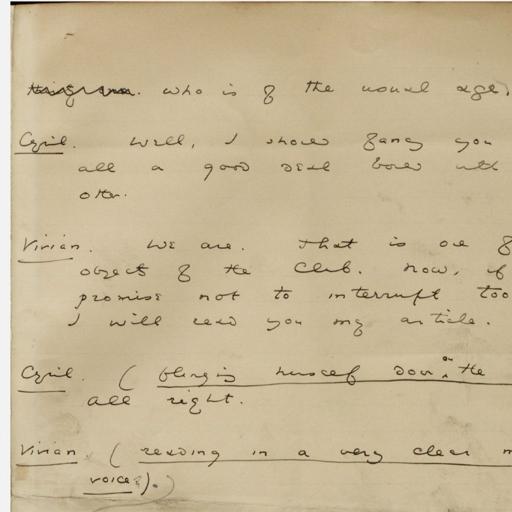 who is of the usual age,
Cyril. Well, I should fancy you
all a good deal bored with
other.
Vivian. We are. That is one of
objects of the Club. Now, if
promise not to interrupt too
I will read you my article.
Cyril. (flinging himself down on the
all right.
Vivian (reading in a very clear m
voice).)